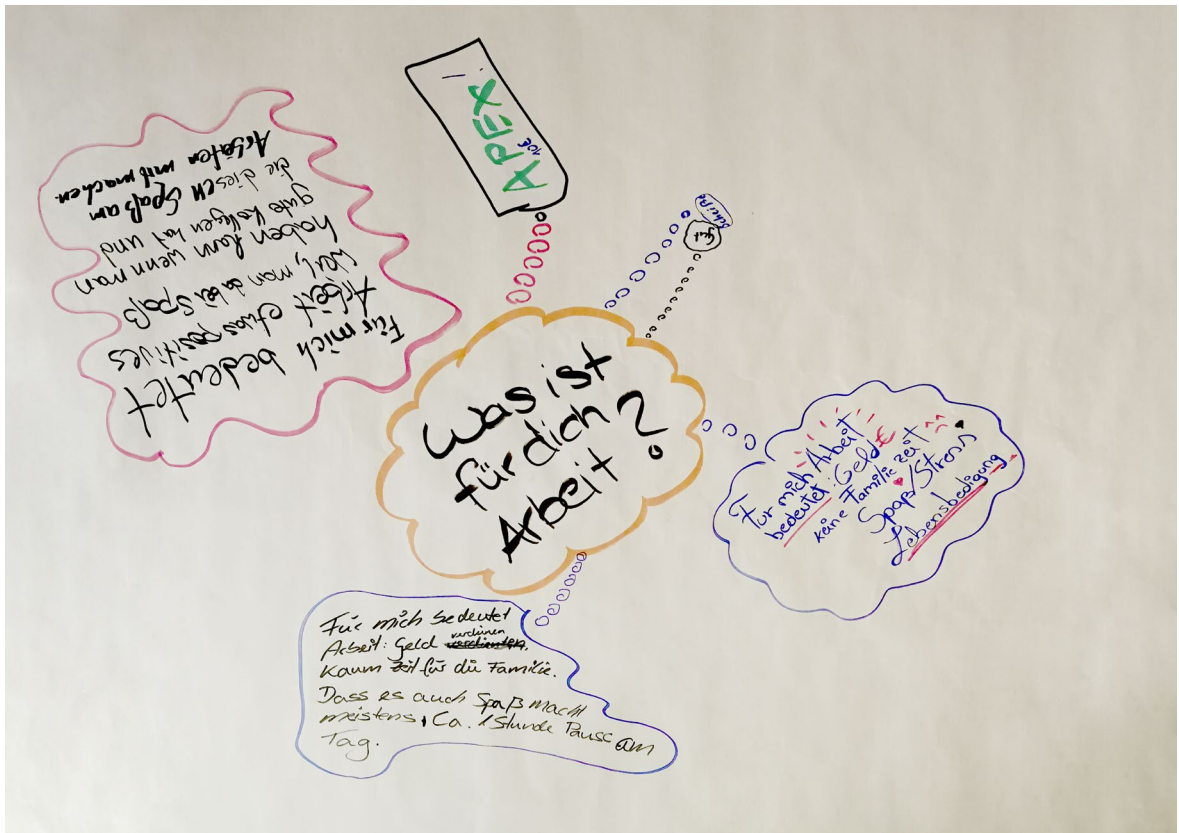 Was ist
für dich
Arbeit?
Für mich bedeutet
Arbeit etwas positives
weil, man dabei Spaß
haben kann wenn man
gute Kollegen hat und
die diesen Spaß am
Arbäten mit machen.
APEX!
10€
scheiße
gut
Für mich Arbeit
bedeutet: Geld €
keine Familie zeit
Spaß/Stress
Lebensbedigung
Für mich bedeutet
Arbeit: Geld verdinen
Kaum zeit für die Familie.
Dass es auch Spaß macht
meistens, Ca. 1 Stunde Pause am
Tag.